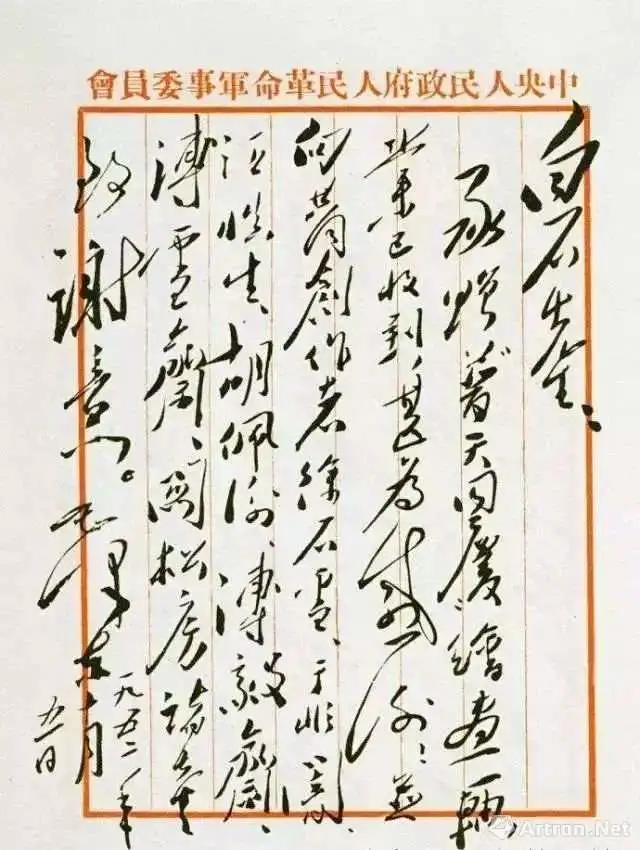 中央人民政府人民革命軍事委員會
白石先生：
承贈“普天同慶”繪畫一軸，
業已收到，甚為感謝！並
向共同創作者徐石雪、于非闇、
汪慎生、胡佩衡、溥毅齋、
溥雪齋、關松房諸先生
致謝意。毛澤東
一九五二年
十月五日
Artron.Net